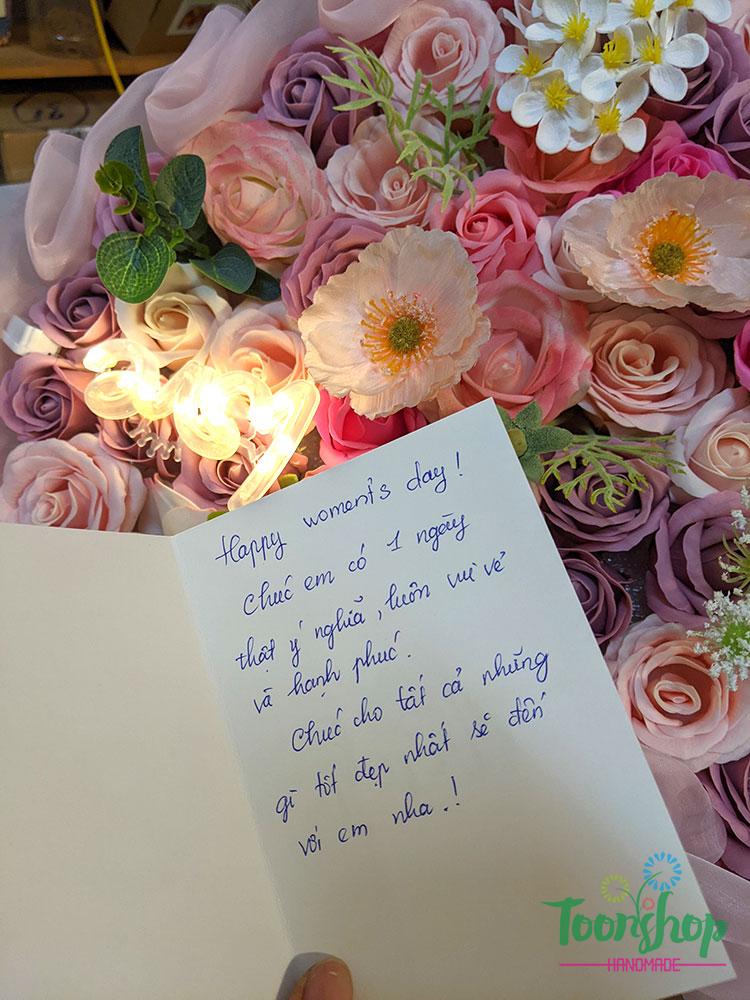 Happy woment's day!
Chúc em có 1 ngày
thật ý nghĩa, luôn vui vẻ
và hạnh phúc.
Chúc cho tất cả những
gì tốt đẹp nhất sẽ đến
với em nha.!
Toonshop
HANDMADE